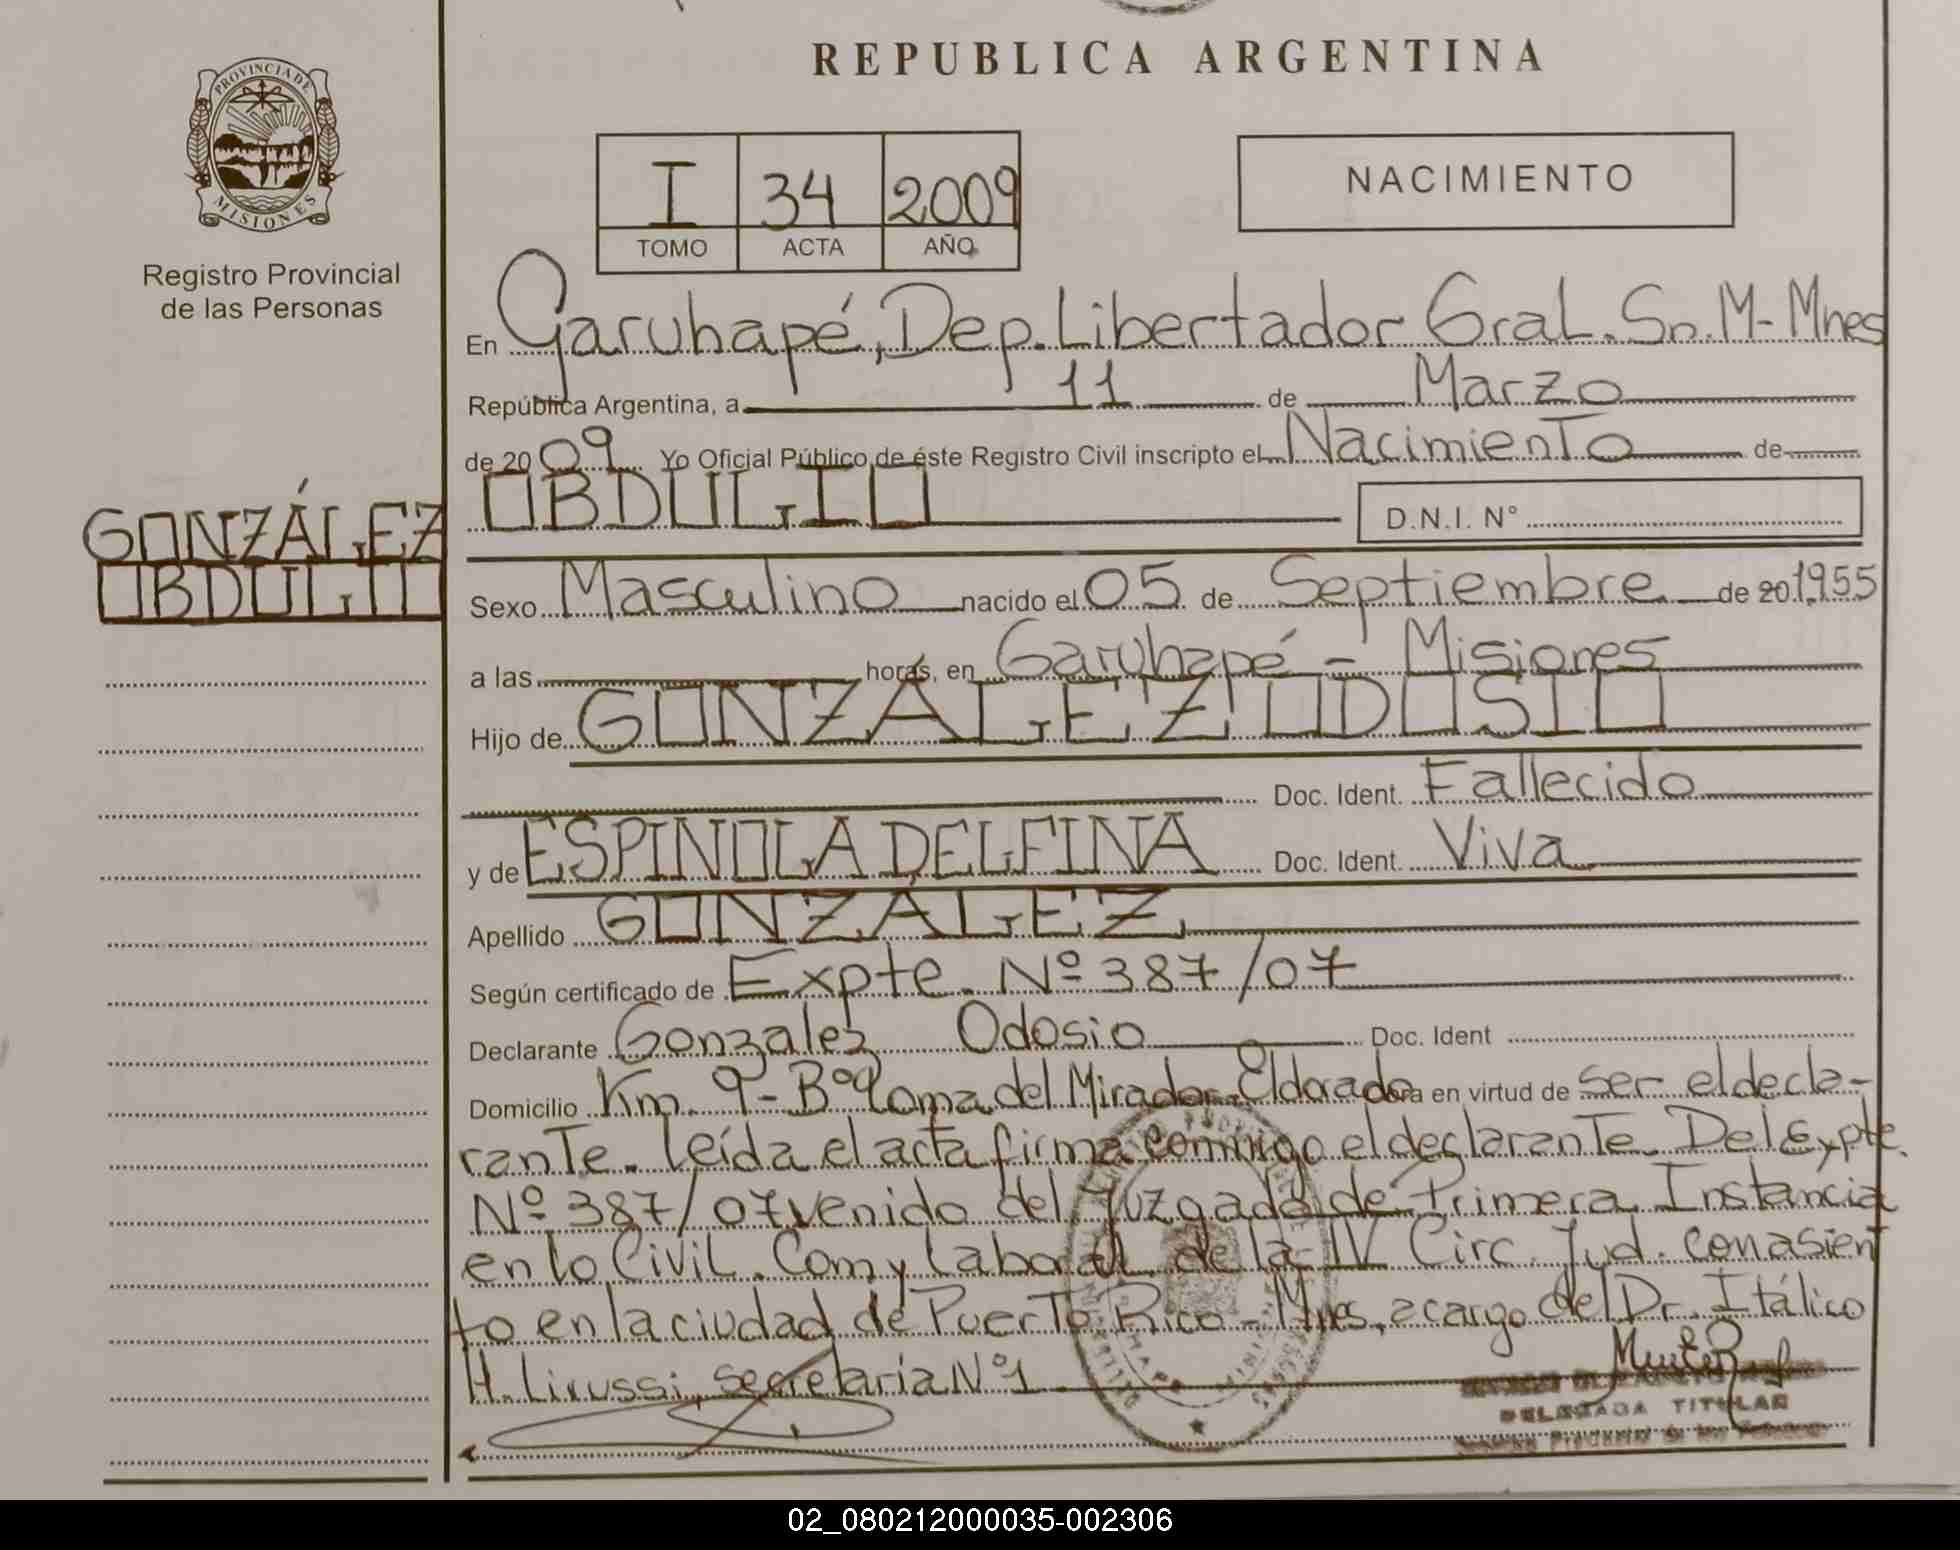 REPUBLICA ARGENTINA
PROVINCIA DE
MISIONES
Registro Provincial
de las Personas
I 34 2009
TOMO ACTA AÑO
NACIMIENTO
En Garuhapé, Dep. Libertador Gral. Sn. M - Mnes
República Argentina, a 11 de Marzo
de 2009 Yo Oficial Público de éste Registro Civil inscripto el Nacimiento de
OBDULIO D.N.I. N°
GONZÁLEZ
OBDULIO
Sexo Masculino nacido el 05 de Septiembre de 20 1955
a las horas, en Garuhapé - Misiones
Hijo de GONZÁLEZ ODOSIO
Doc. Ident. Fallecido
y de ESPINOLA DELFINA Doc. Ident. Viva
Apellido GONZÁLEZ
Según certificado de Expte. Nº 387/07
Declarante Gonzalez Odosio Doc. Ident
Domicilio Km. 9 - Bº Loma del Mirador. Eldorado en virtud de ser el decla-
rante. Leída el acta firma conmigo el declarante. Del Expte.
Nº 387/07 venido del Juzgado de Primera Instancia
en lo Civil. Com y Laboral de la IV Circ. Jud. con asien
to en la ciudad de Puerto Rico - Mnes, a cargo del Dr. Itálico
H. Lirussi, secretaría Nº 1
DELEGADA TITULAR
02_080212000035-002306